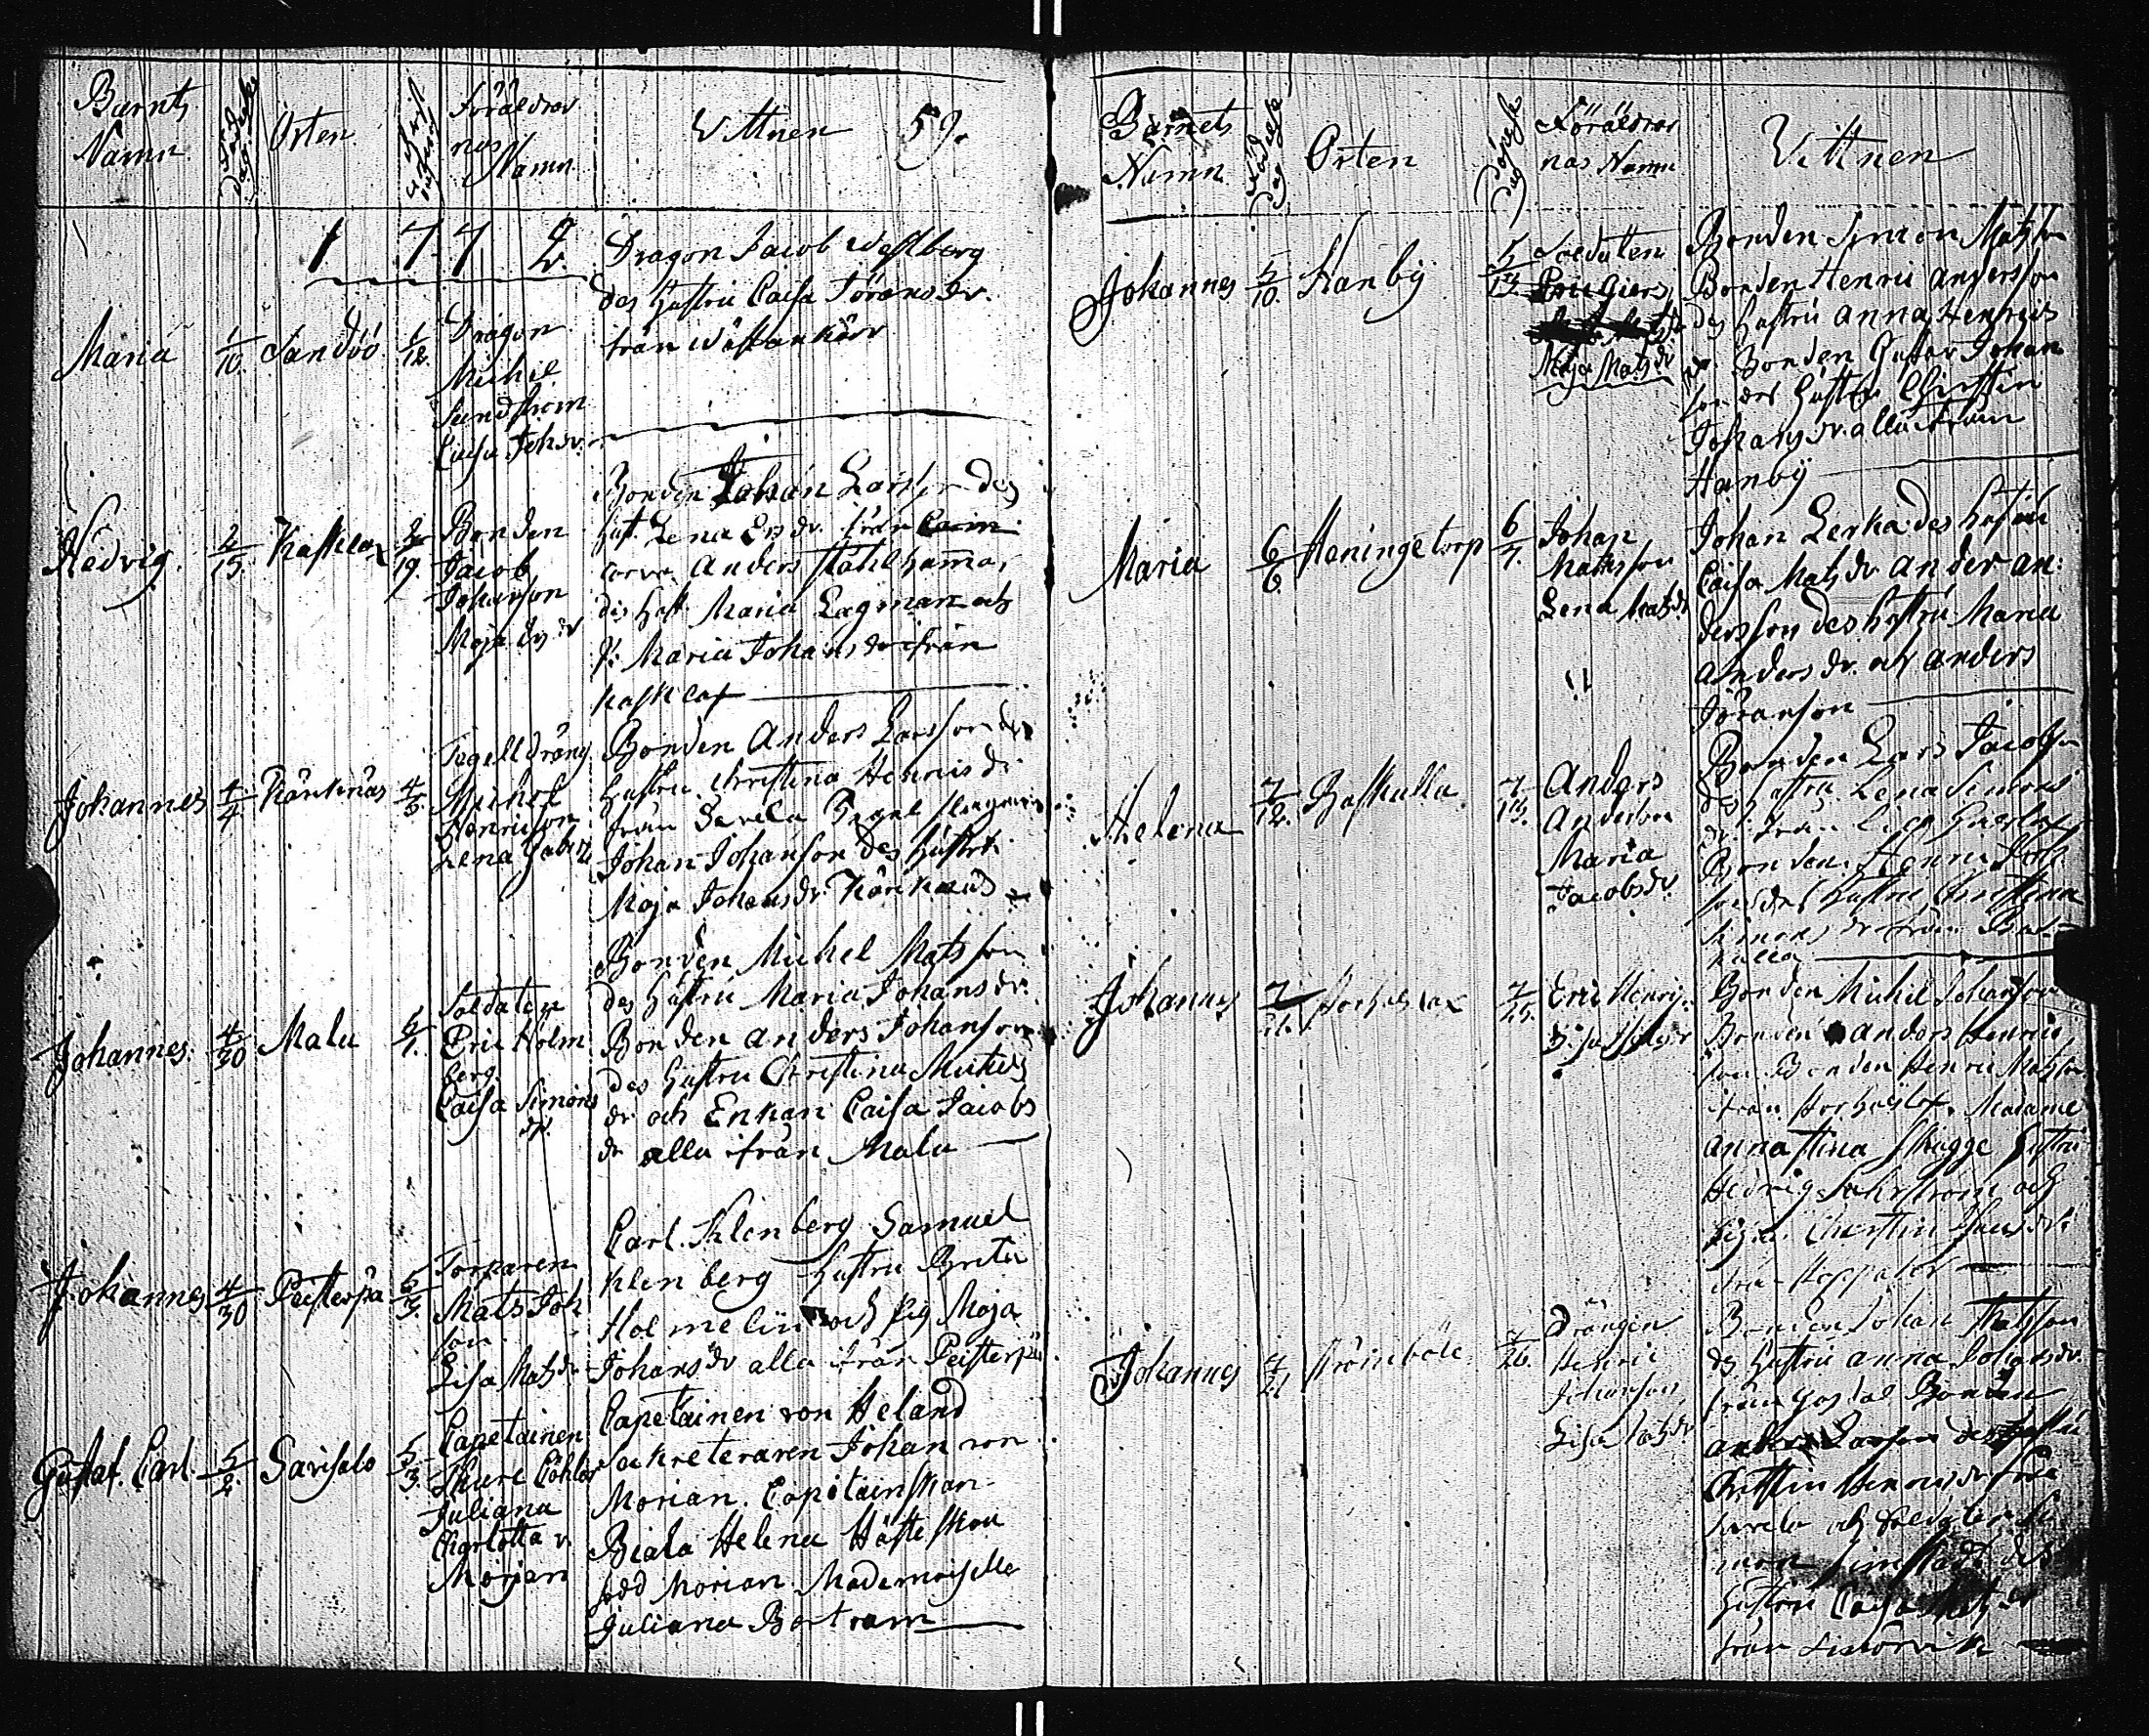 Barnets Namn Födelse dag Orten Föräldrar nas Namn Vittnen 59.
1772
Maria 1/10. Sandöö 1/12. Dragon Michil Sundstrom Caisa Johsdr.
Dragon Jacob Westberg
des Hustru Caisa Jöransdr.
från Wästankärr
Hedvig. 2/15. Kasklax 2/19. Bonden Jacob Johanson Maja Ersdr
Bonden Johan Larsson des
Hust. Lena Ersdr. från
corva Anders Stahlhammar
des Hust Maria Lagman och
P: Maria Johansdr ifrån
Kasklax
Johannes 4/4 Kärknäs 4/5. Tegelldräng Michel Henricson Lena Gabr
Bonden Anders Larsson des
Hustru Christina Henricsdr
från Savela Tegelslagaren
Johan Johanson des Hustru
Maja Johansdr. Kärknäs
Johannes. 4/30 Malu 5/1. Soldaten Eric Holm berg Caisa Simons dr.
Bonden Michel Matsson
des Hustru Maria Johansdr.
Bonden Anders Johanson
des Hustru Christina Michels
dr och Enkan Caisa Jacobs
dr alla ifrån Malu
Johannes 4/30 Peisterpä 5/3. Torparen Mats Joh son Lisa Matsdr
Carl. Klenberg Samuel
Klenberg Hustru Breta
Holmelin och Pig Maja
Johansdr alla ifrån Peisterpä
Gustaf. Carl. 5/2. Sarisalo 5/3. Capetainen Thure Cöhler Juliana Charlotta v. Morian
Capetainen von Heland
Sekreteraren Johan von
Morian. Capitainskan
Biala Helena Häste skou
född Morian Mademoiselle
Juliana Bartram
Barnets Namn Födelse dag Orten Döpelse dag Föräldrar nas Namn Vittnen
Johannes 5/10. Hanby 5/13. Soldaten Eric Giers Maja Matsdr
Bonden Simon Matsson
Bonden Henric Andersson
des Hustru Anna Henrics
dr. Bonden Gustav Johan
son des Hustru Christin
Johansdr. alla ifrån
Hanby
Maria 6/6. Haningetorp 6/7. Johan Mattsson Lena Matsdr
Johan Lerka des Hustru
Caisa Matsdr Ander An:
dersson des Hustru Maria
Andersdr. och Anders
Jöranson
Helena 7/12. Baskulla 7/13. Anders Anderson Maria Jacobsdr
Bonden Lars Jacobson
des Hustru Lena Simons
dr. från
Bonden Henric Joh
son des Hustru Christina
Simonsdr från Bas
kulla
Johannes 7/ 7/25. Eric Henrics.
Bonden Michel Johanson
Bonden Anders Henric
son Bonden Henric Matsson
ifrån Madame
Anna Stina Skugge Hustru
Hedvig och
Pigan Christin
från
Johannes 7/21 Strömböle 7/26. Drängen Henric Johanson Lisa Matsdr
Bonden Johan Matsson
des Hustru Anna Johansdr.
från Bonden
Anders Larson des Hustru
Christin Henricsdr från
Savela och Soldaten Si
mon des
Hustru Caisa Matsdr
från